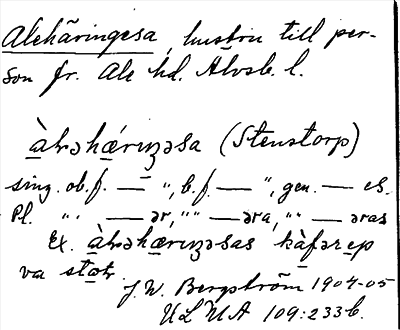 Alehäringesa, hustru till per-
son fr. Ale hd. Älvsb. l.
àləhǽrıŋəsa (Stenstorp)
sing. ob. f. — ", b. f. — ", gen. — es.
Pl. " " — ər, " " — əra, " " — əras
Ex. àləhærıŋəsas kàfərep
va stor.
J. W. Bergström 1904-05
ULMA 109:233b.